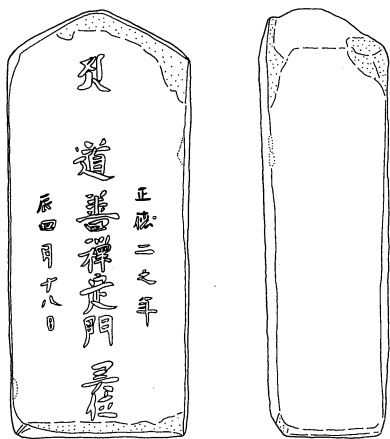 正徳二之年
道善禪定門 霊位
辰四月十八日